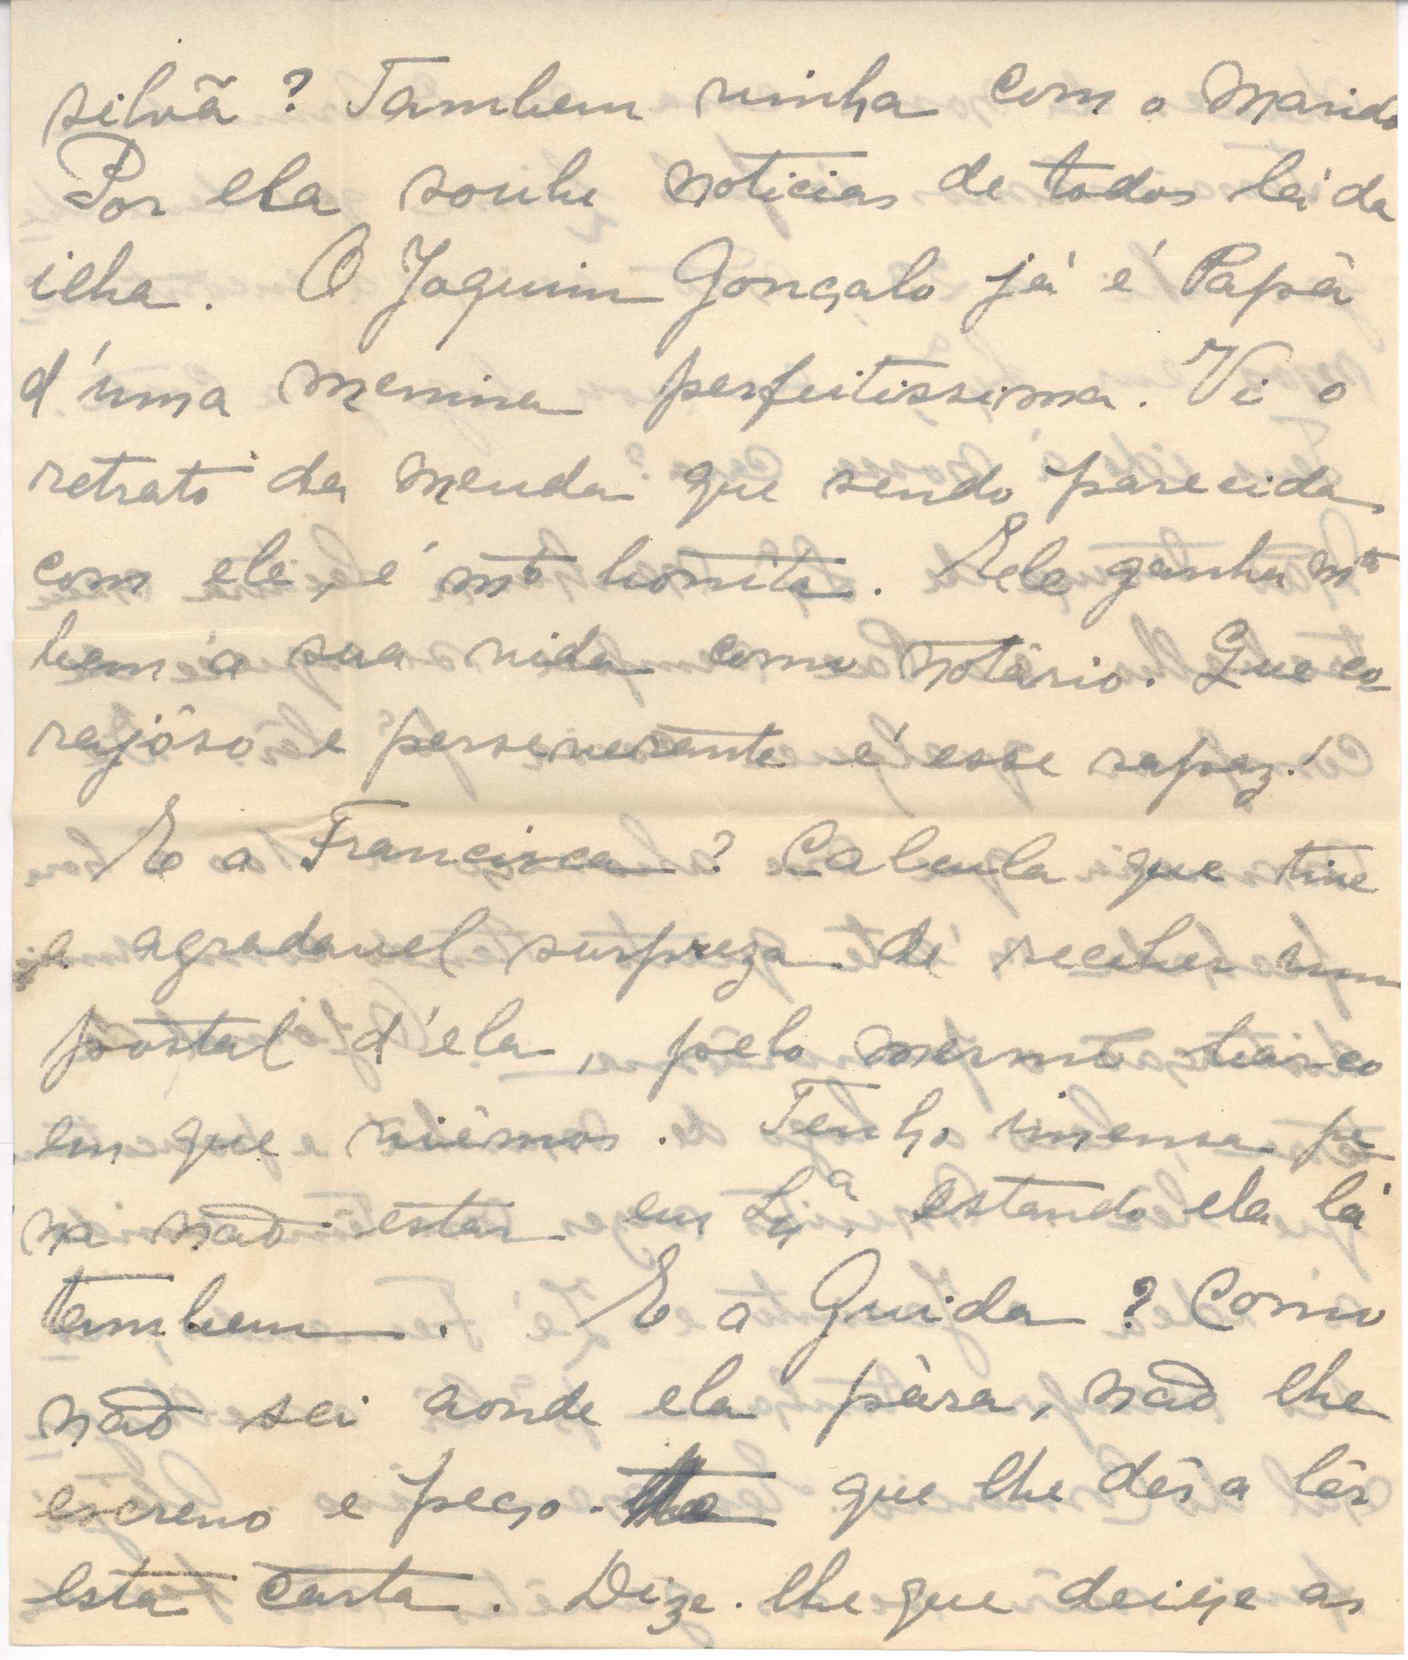 silvã? Tambem vinha com o marido
Por ela soube noticias de todos lá da
ilha. O Joquim Gonçalo já é Papá
d'uma menina perfeitissima. Vi o
retrato da menda que sendo parecida
com ele, é mto bonita. Ele ganha mto
bem a sua vida como notário. Que co-
rajôso e perseverante é esse rapaz!
E a Francisca? Calcula que tive
a agradavel surpreza de receber um
postal d'ela, pelo mesmo barco
em que viémos. Tenho imensa pe-
na não estar em Lxa. estando ela lá
tambem. E a Guida? Como
não sei aonde ela pára, não lhe
escrevo e peço-te que lhe dês a lêr
esta carta. Dize-lhe que deixe as